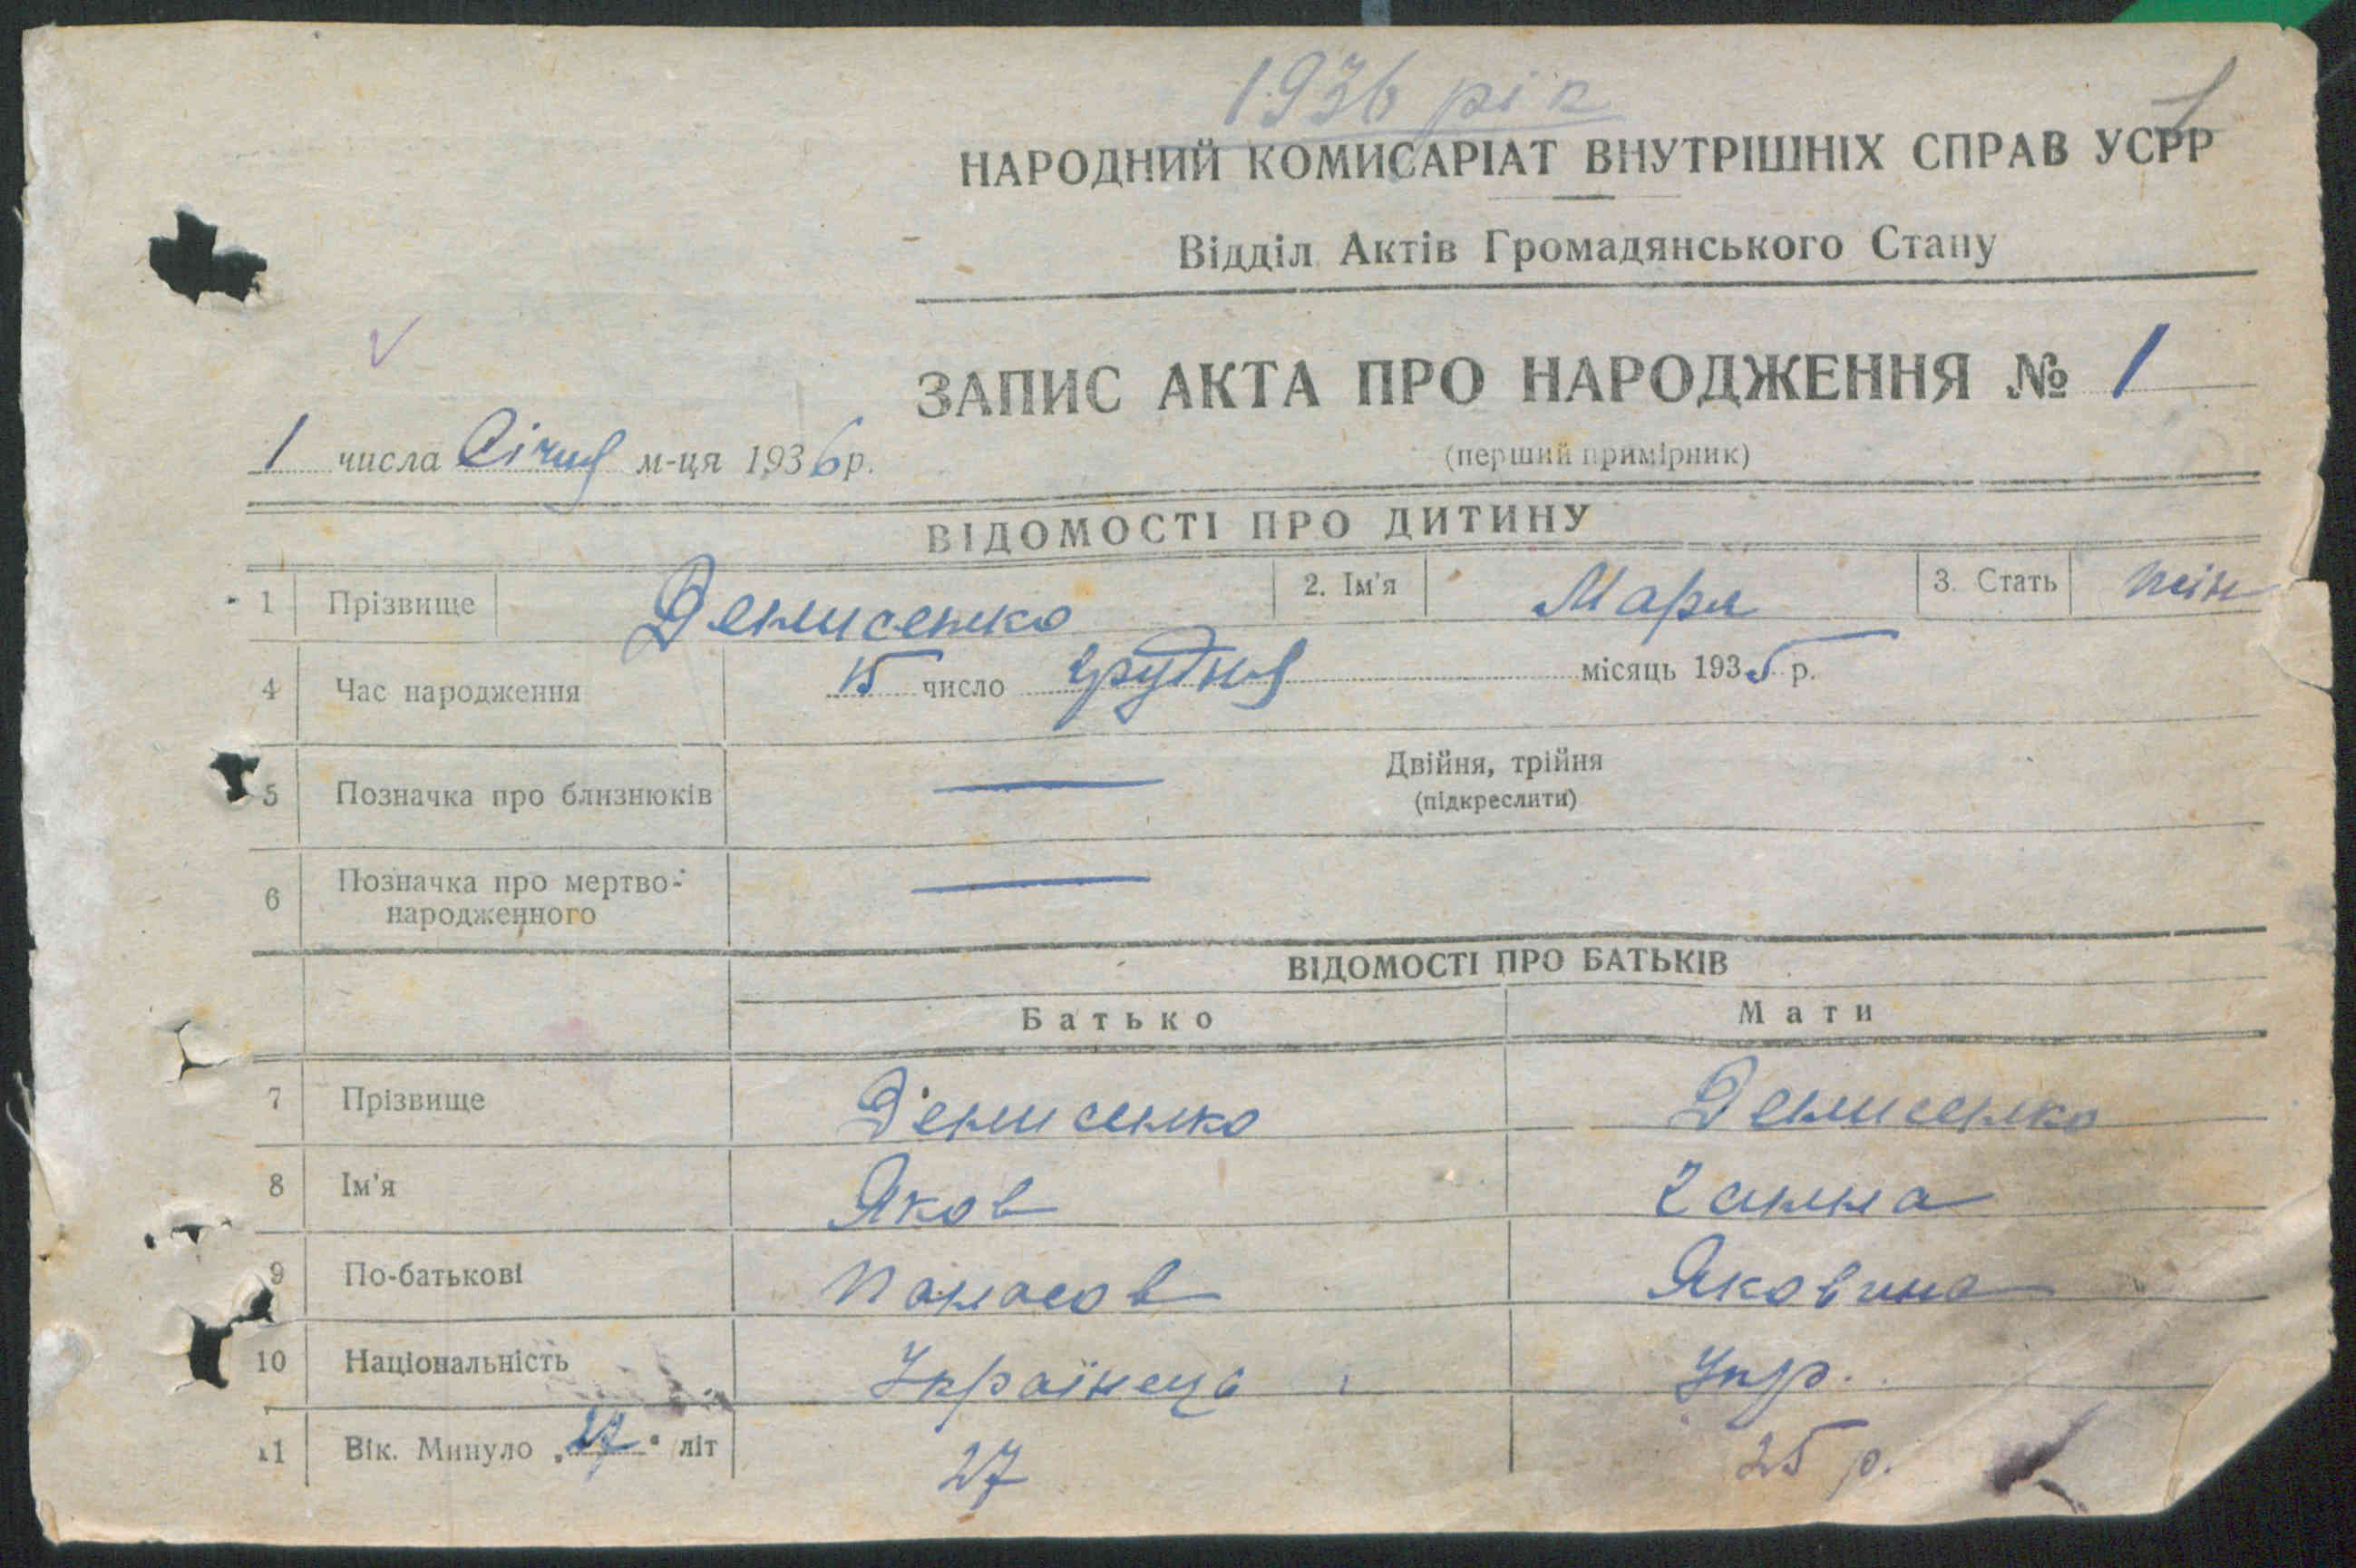 1936 рік
1
НАРОДНИЙ КОМИСАРІАТ ВНУТРІШНІХ СПРАВ УСРР
Відділ Актів Громадянського Стану
ЗАПИС АКТА ПРО НАРОДЖЕННЯ № 1
1 числа Січня м-ця 1936 р.
(перший примірник)
ВІДОМОСТІ ПРО ДИТИНУ
1 Прізвище Денисенко 2. Ім'я Маря 3. Стать жін
4 Час народження 15 число грудня місяць 1935 р.
5 Позначка про близнюків — Двійня, трійня
(підкреслити)
6 Позначка про мертво-
народженного —
ВІДОМОСТІ ПРО БАТЬКІВ
Батько Мати
7 Прізвище Денисенко Денисенко
8 Ім'я Яков Ганна
9 По-батькові Панасов Яковина
10 Національність Українець Укр.
11 Вік. Минуло „27“ літ 27 25 р.